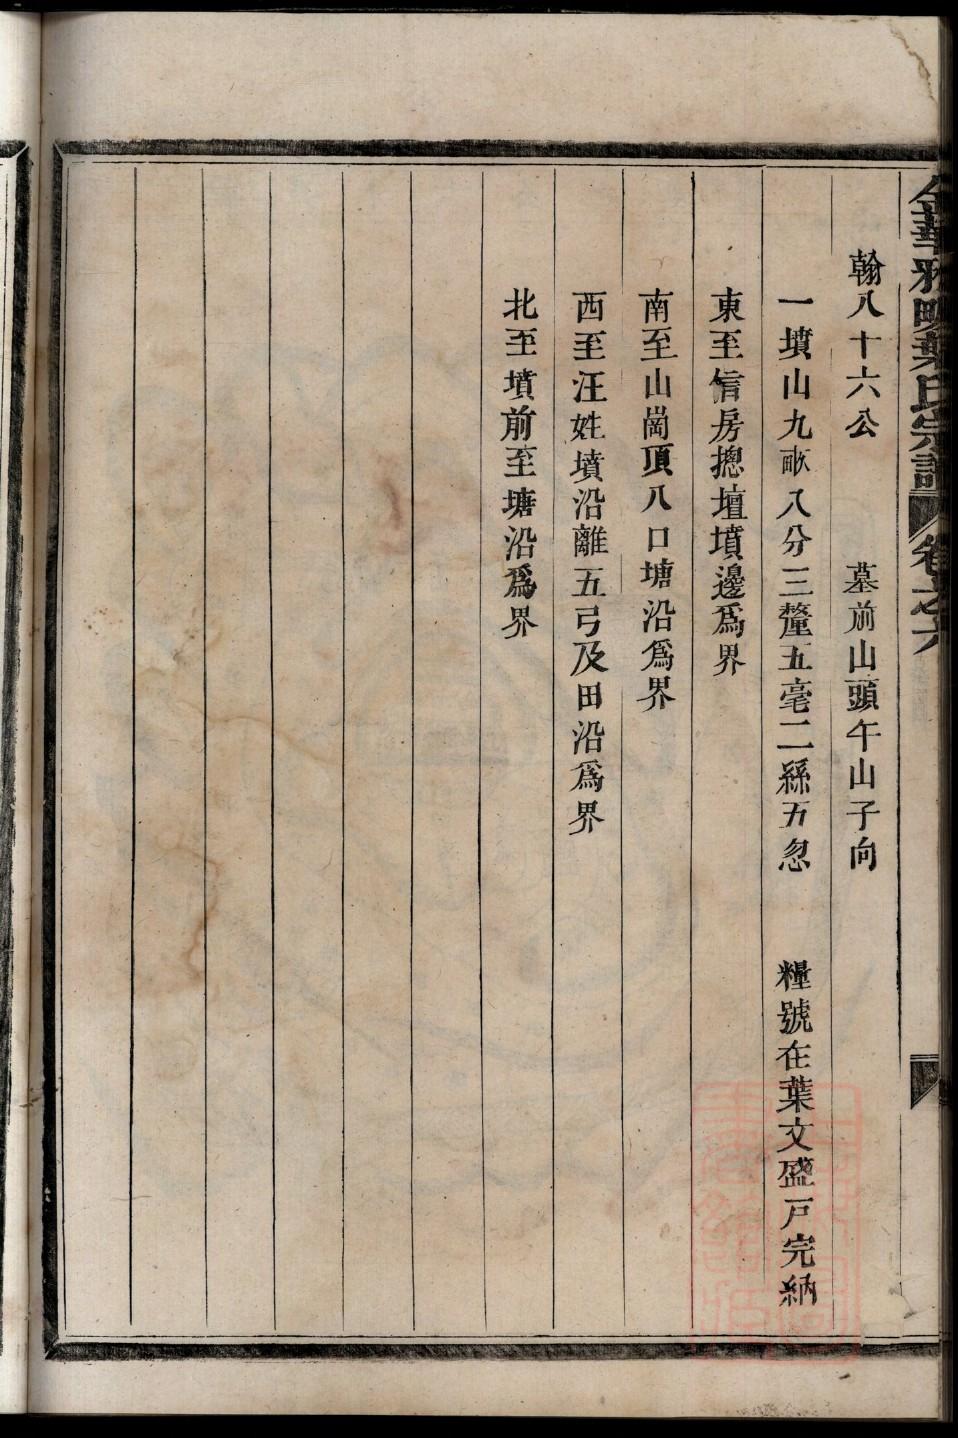 金華雅畈葉氏宗譜 卷之六
翰八十六公 墓前山頭午山子向
一墳山九畝八分三釐五毫二絲五忽 糧號在葉文盛戸完納
東至信房摠壇墳邊爲界
南至山崗頂八口塘沿爲界
西至汪姓墳沿離五弓及田沿爲界
北至墳前至塘沿爲界